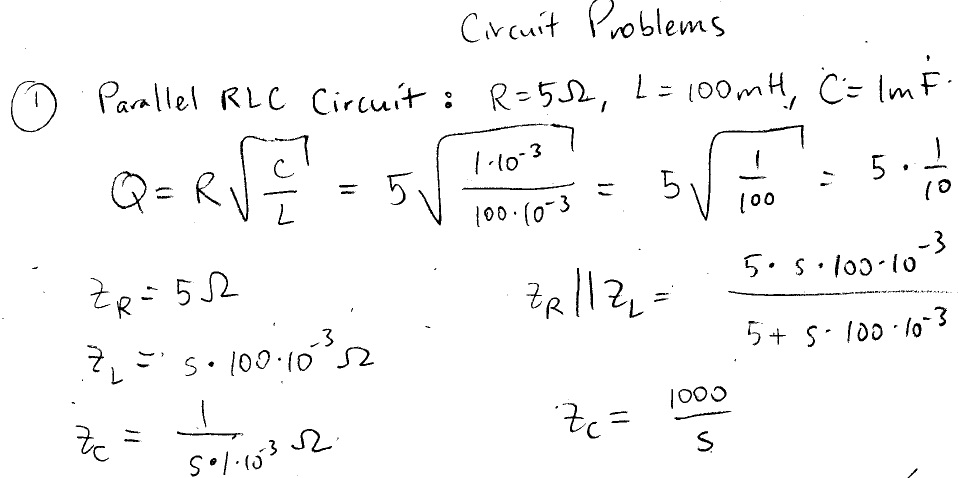 Circuit Problems
① Parallel RLC Circuit : R=5Ω, L = 100mH, C = 1mF.
Q = R√(C/L) = 5√(1·10⁻³/100·10⁻³) = 5√(1/100) = 5 · 1/10
Z_R = 5Ω
Z_R || Z_L = (5 · s · 100 · 10⁻³)/(5 + s · 100 · 10⁻³)
Z_L = s · 100 · 10⁻³ Ω
Z_C = 1/(s · 1 · 10⁻³) Ω
Z_C = 1000/s